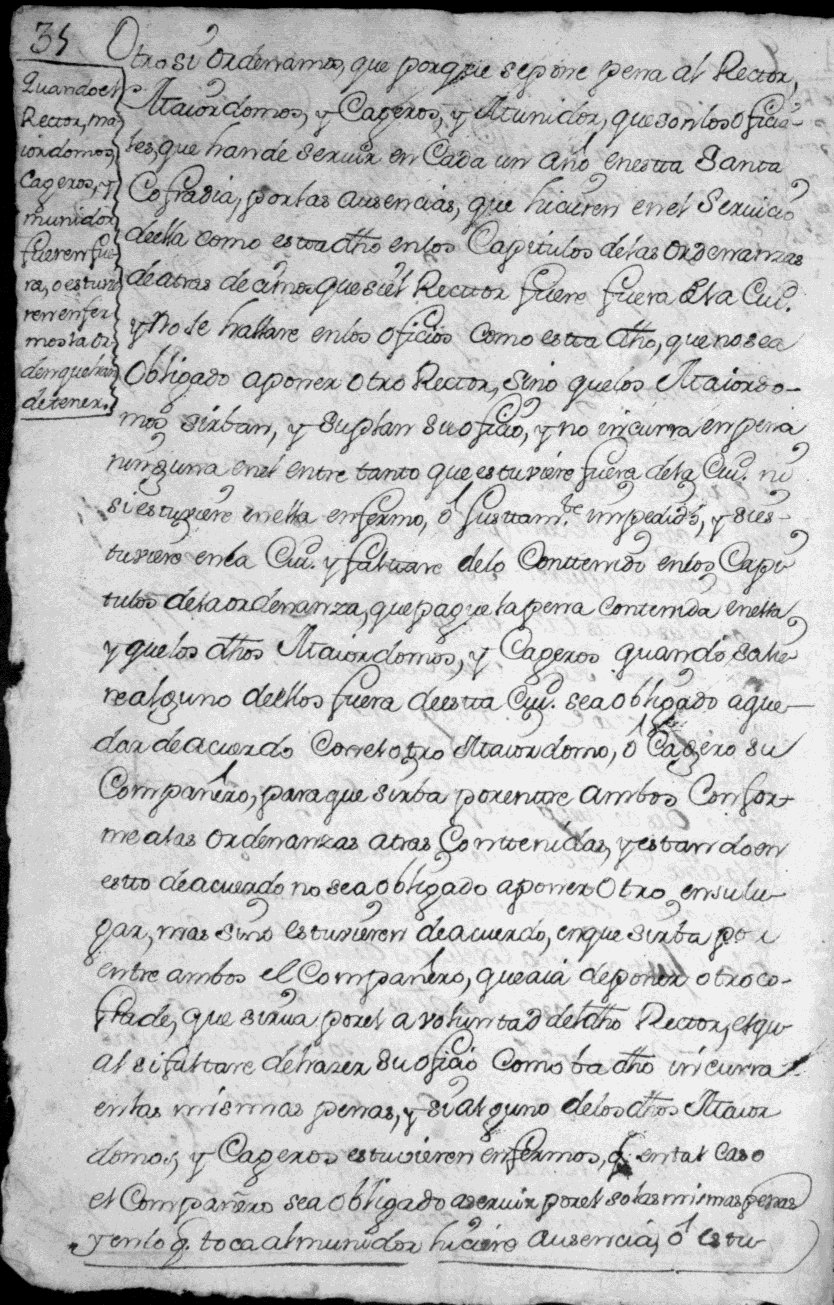 35
Quando el
Rector, ma
iordomos,
Cageros, y
munidor
fueren fue
ra, o estuvie
ren enfer
mos la or
den que han
de tener.
Otro si Ordenamos, que porque se pone pena al Rector,
Maiordomos, y Cageros, y Munidor, que son los Oficia-
les, que han de servir en Cada un año en esta Santa
Cofradia, por las ausencias, que hicieren en el Servicio
della como esta dho en los Capitulos de las Ordenanzas
de atras decimos que si el Recttor fuere fuera de la Ciu.
y no se hallare en los oficios como estta dho, que no sea
Obligado a poner otro Rector, sino que los Maiordo-
mos sirban, y suplan su oficio, y no incurra en pena
ninguna en el entre tanto que estuviere fuera dela Ciu. ni
si estuviere en ella enfermo, ó Justtam.te impedido, y si es-
tuviere en la Ciu. y faltare delo Conttenido en los Capi
tulos dela ordenanza, que pague la pena contenida en ella
y que los dhos Maiordomos, y Cageros quando salie
re alguno dellos fuera de estta Ciu. sea obligado a que-
dar de acuerdo Con el otro Maiordomo, ó Cagero su
Compañero, para que sirba por entre ambos Confor-
me a las Ordenanzas atras Contenidas, y estando en
estto de acuerdo no sea obligado a poner Otro en su lu-
gar, mas sino estuvieren de acuerdo, en que sirba por
entre ambos el Compañero, que aia de poner otro co-
frade, que sirva por el a voluntad del dho Rector, el qu
al si faltare de hazer su oficio Como ba dho incurra
en las mismas penas, y si alguno delos dhos Maior
domos, y Cageros estuvieren enfermos, q. en tal caso
el Compañero sea obligado a servir por el so las mismas penas
y en lo q. toca al munidor hiciere ausencia, ó estu